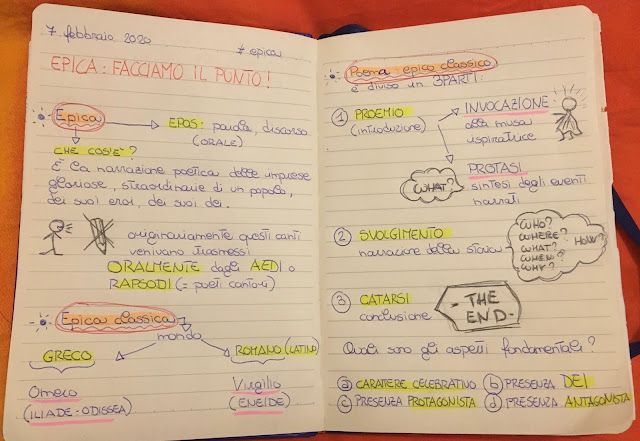 7 febbraio 2020
# epica
EPICA: FACCIAMO IL PUNTO!
Epica
EPOS: parola, discorso
(ORALE)
CHE COS'È?
È la narrazione poetica delle imprese
gloriose, straordinarie di un popolo,
dei suoi eroi, dei suoi dei.
originariamente questi canti
venivano trasmessi
ORALMENTE dagli AEDI o
RAPSODI (= poeti cantori)
Epica classica
mondo
GRECO
ROMANO (LATINO)
Omero
(ILIADE-ODISSEA)
Virgilio
(ENEIDE)
Poema epico classico
è diviso in 3 PARTI:
1 PROEMIO
(introduzione)
INVOCAZIONE
alla musa
ispiratrice
WHAT?
PROTASI
sintesi degli eventi
narrati
2 SVOLGIMENTO
narrazione della storia
WHO?
WHERE?
WHAT?
WHEN?
WHY?
HOW?
3 CATARSI
conclusione
- THE
END -
Quali sono gli aspetti fondamentali?
a CARATTERE CELEBRATIVO b PRESENZA DEI
c PRESENZA PROTAGONISTA d PRESENZA ANTAGONISTA